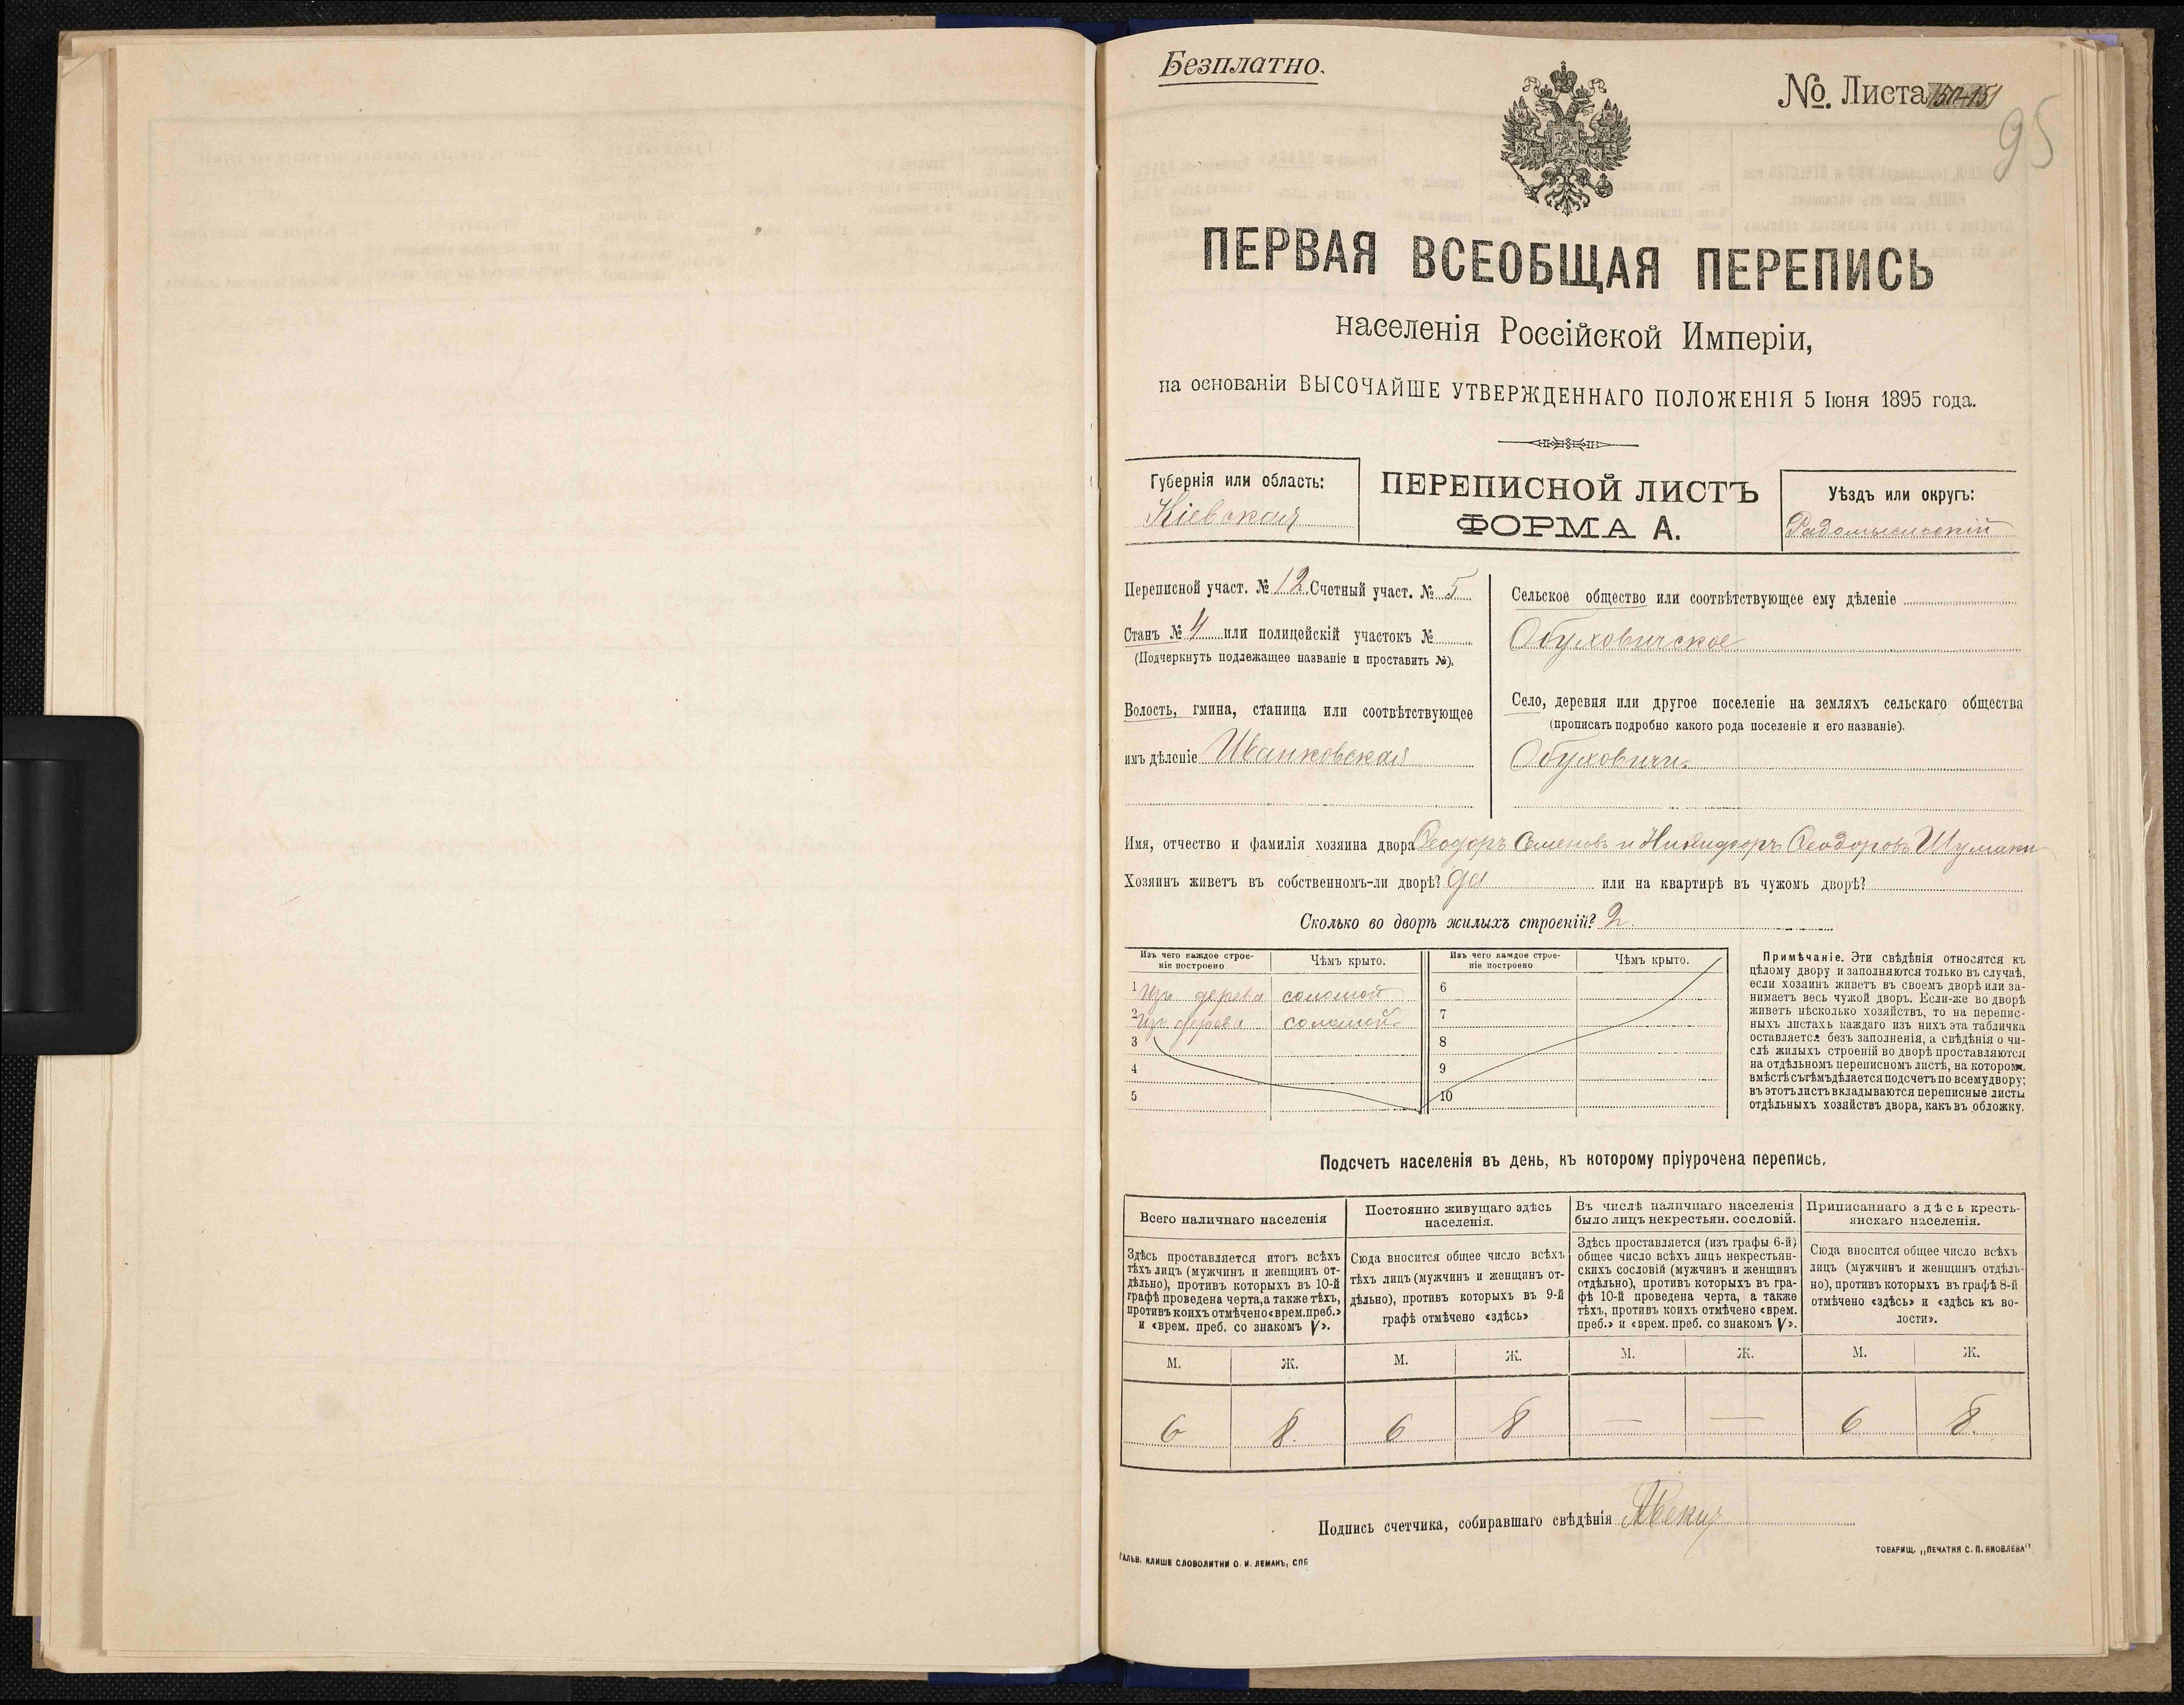 Безплатно.
№. Листа 150-151
95
ПЕРВАЯ ВСЕОБЩАЯ ПЕРЕПИСЬ
населенія Россійской Имперіи,
на основаніи ВЫСОЧАЙШЕ УТВЕРЖДЕННАГО ПОЛОЖЕНІЯ 5 Іюня 1895 года.
Губернія или область:
Кіевская
ПЕРЕПИСНОЙ ЛИСТЪ
ФОРМА А.
Уѣздъ или округъ:
Радомысльскій
Переписной участ. № 12. Счетный участ. № 5
Станъ № 4 или полицейскій участокъ №
(Подчеркнуть подлежащее названіе и проставить №).
Волость, гмина, станица или соотвѣтствующее
имъ дѣленіе Иванковская
Сельское общество или соотвѣтствующее ему дѣленіе
Обуховичское
Село, деревня или другое поселеніе на земляхъ сельскаго общества
(прописать подробно какого рода поселеніе и его названіе).
Обуховичи.
Имя, отчество и фамилія хозяина двора Ѳеодоръ Семеновъ и Никифоръ Ѳеодоровъ Шумаки
Хозяинъ живетъ въ собственномъ-ли дворѣ? да или на квартирѣ въ чужомъ дворѣ?
Сколько во дворѣ жилыхъ строеній? 2.
Изъ чего каждое строе-
ніе построено
Чѣмъ крыто.
Изъ чего каждое строе-
ніе построено
Чѣмъ крыто.
1 Изъ дерева соломой 6
2 Изъ дерева соломой. 7
3 8
4 9
5 10
Примѣчаніе. Эти свѣдѣнія относятся къ
цѣлому двору и заполняются только въ случаѣ,
если хозяинъ живетъ въ своемъ дворѣ или за-
нимаетъ весь чужой дворъ. Если-же во дворѣ
живетъ нѣсколько хозяйствъ, то на перепис-
ныхъ листахъ каждаго изъ нихъ эта табличка
оставляется безъ заполненія, а свѣдѣнія о чи-
слѣ жилыхъ строеній во дворѣ проставляются
на отдѣльномъ переписномъ листѣ, на которомъ
вмѣстѣ съ тѣмъ дѣлается подсчетъ по всему двору;
въ этотъ листъ вкладываются переписные листы
отдѣльныхъ хозяйствъ двора, какъ въ обложку.
Подсчетъ населенія въ день, къ которому пріурочена перепись.
Всего наличнаго населенія
Постоянно живущаго здѣсь
населенія.
Въ числѣ наличнаго населенія
было лицъ некрестьян. сословій.
Приписаннаго здѣсь кресть-
янскаго населенія.
Здѣсь проставляется итогъ всѣхъ
тѣхъ лицъ (мужчинъ и женщинъ от-
дѣльно), противъ которыхъ въ 10-й
графѣ проведена черта, а также тѣхъ,
противъ коихъ отмѣчено «врем. преб.»
и «врем. преб. со знакомъ V».
Сюда вносится общее число всѣхъ
тѣхъ лицъ (мужчинъ и женщинъ от-
дѣльно), противъ которыхъ въ 9-й
графѣ отмѣчено «здѣсь»
Здѣсь проставляется (изъ графы 6-й)
общее число всѣхъ лицъ некрестьян-
скихъ сословій (мужчинъ и женщинъ
отдѣльно), противъ которыхъ въ гра-
фѣ 10-й проведена черта, а также
тѣхъ, противъ коихъ отмѣчено «врем.
преб.» и «врем. преб. со знакомъ V».
Сюда вносится общее число всѣхъ
лицъ (мужчинъ и женщинъ отдѣль-
но), противъ которыхъ въ графѣ 8-й
отмѣчено «здѣсь» и «здѣсь къ во-
лости».
М. Ж. М. Ж. М. Ж. М. Ж.
6 8. 6 8 — — 6 8.
Подпись счетчика, собиравшаго свѣдѣнія
ГАЛЬВ. КЛИШЕ СЛОВОЛИТНИ О. И. ЛЕМАНЪ, СПБ
ТОВАРИЩ. „ПЕЧАТНЯ С. П. ЯКОВЛЕВА“